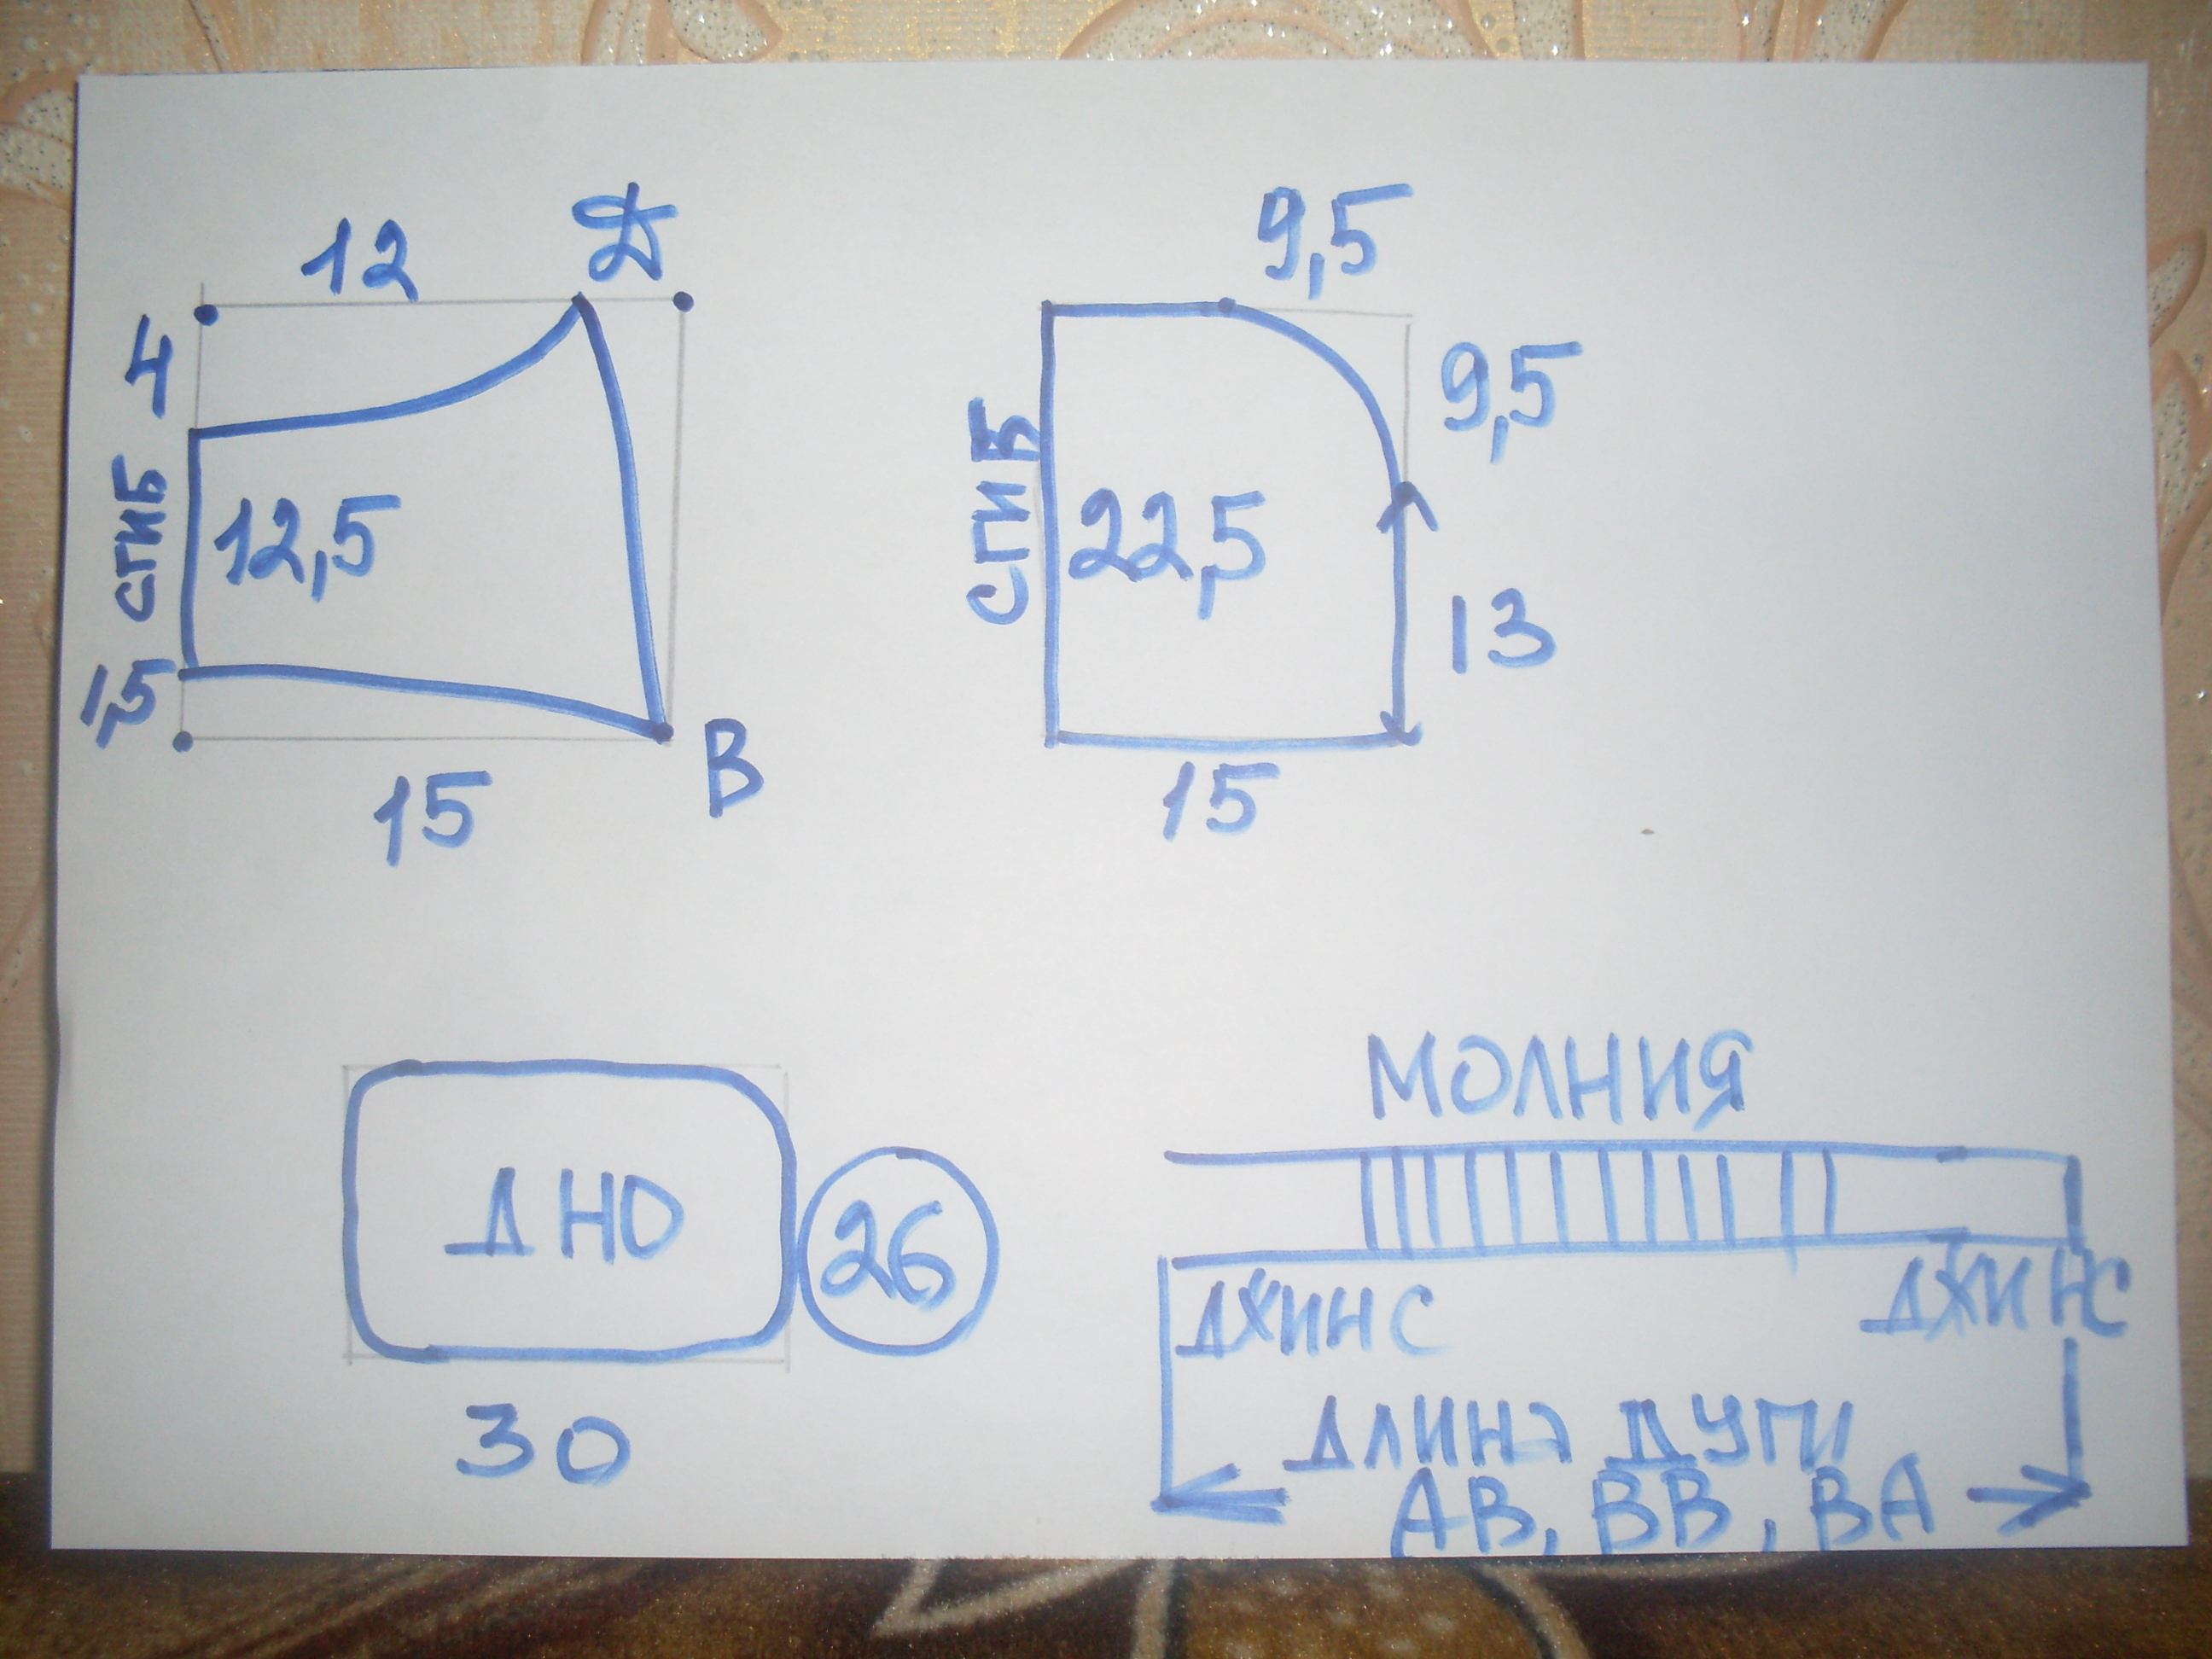 12
Д
4
СГИБ
12,5
1,5
15
В
9,5
9,5
СГИБ
22,5
13
15
ДНО
26
30
МОЛНИЯ
ДЖИНС
ДЖИНС
ДЛИНА ДУГИ
АВ, ВВ, ВА